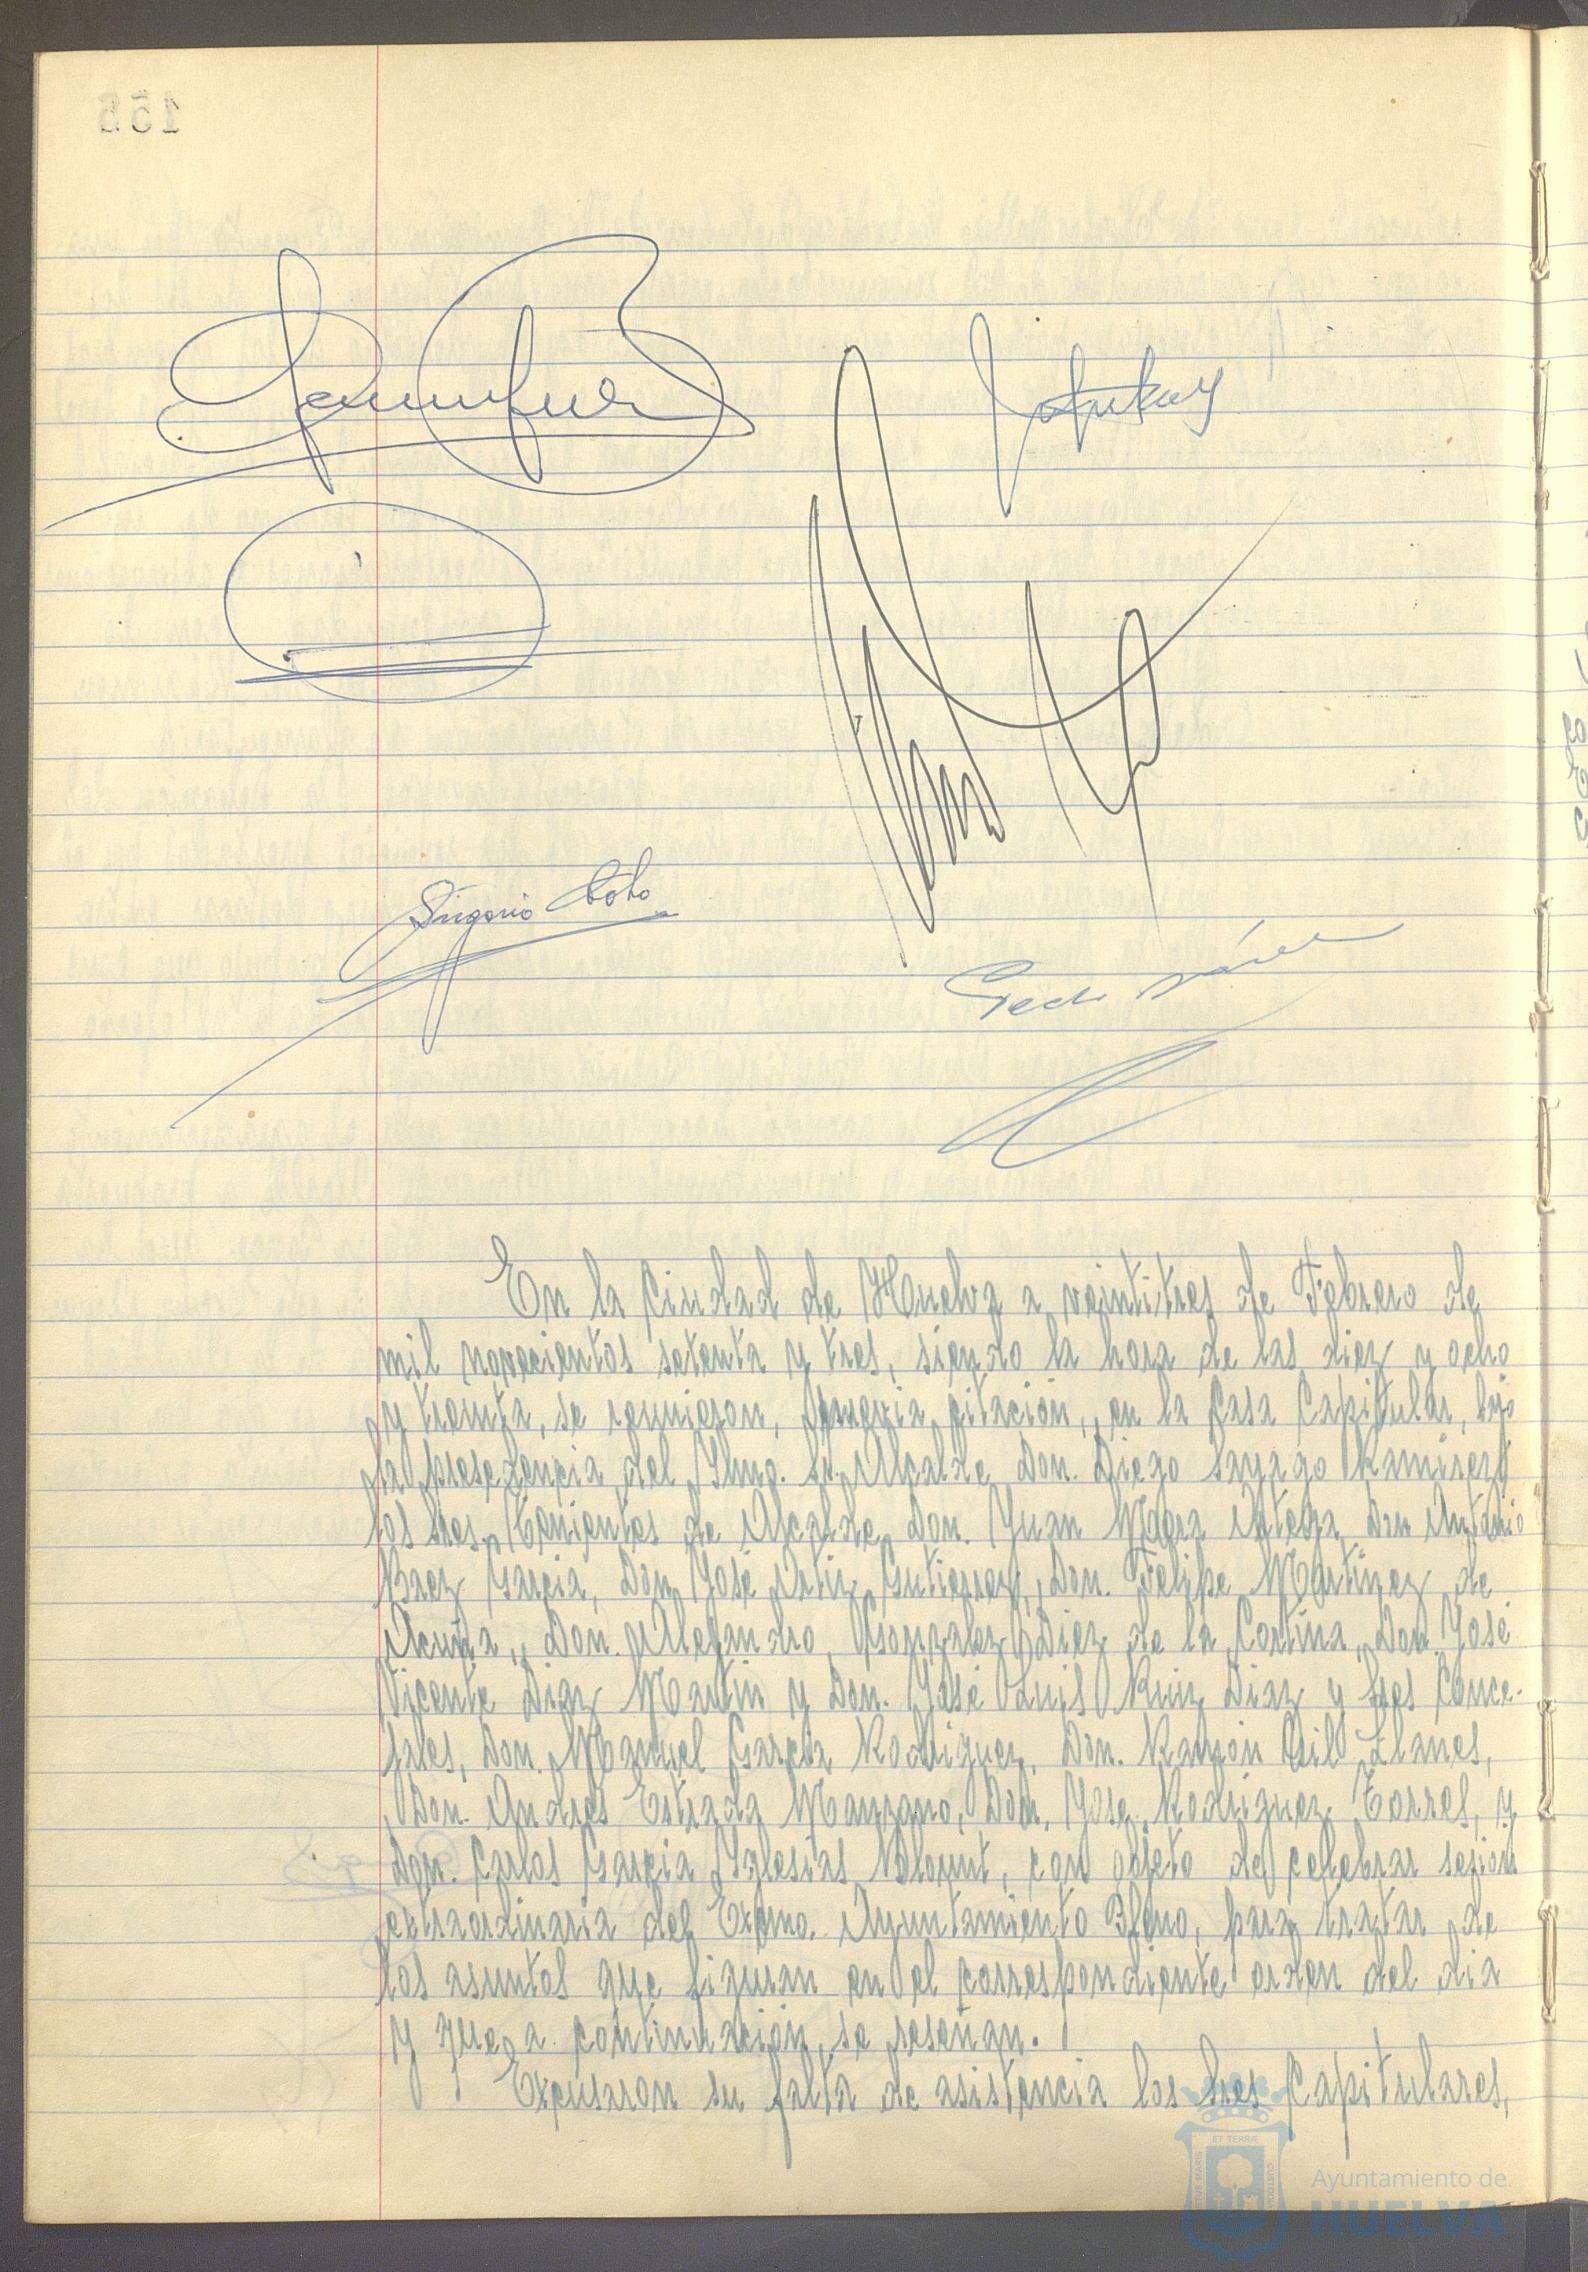 Gregorio Soto
En la Ciudad de Huelva a veintitres de Febrero de
mil novecientos setenta y tres, siendo la hora de las diez y ocho
y treinta, se reunieron, previa citación, en la Casa Capitular, bajo
la presidencia del Ylmo. Sr. Alcalde Don. Diego Sayago Ramirez,
los Sres. Tenientes de Alcalde Don. Juan Mora Ortega Don Antonio
Baez Garcia, Don José Ortiz Gutierrez, Don. Felipe Martinez de
Acuña, Don. Alejandro Gonzalez Diez de la Cortina, Don José
Vicente Diaz Martin y Don. José Luis Ruiz Diaz y Sres Conce-
jales, Don. Manuel Garcia Rodriguez, Don. Ramón Gil Llanes,
Don. Andres Estrada Manzano, Don. José Rodriguez Torres, y
Don. Carlos Garcia Yglesias Blount, con objeto de celebrar sesión
extraordinaria del Excmo. Ayuntamiento Pleno, para tratar de
los asuntos que figuran en el correspondiente orden del dia
y que a continuación se reseñan.
Excusaron su falta de asistencia los Sres Capitulares,
ET TERRÆ
Ayuntamiento de
HUELVA